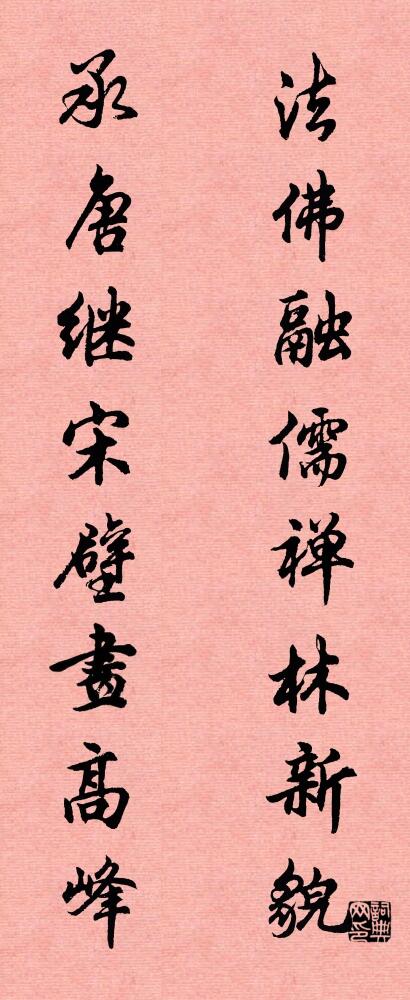 法佛融儒禅林新貌
承唐继宋壁畫高峰
詞典网印